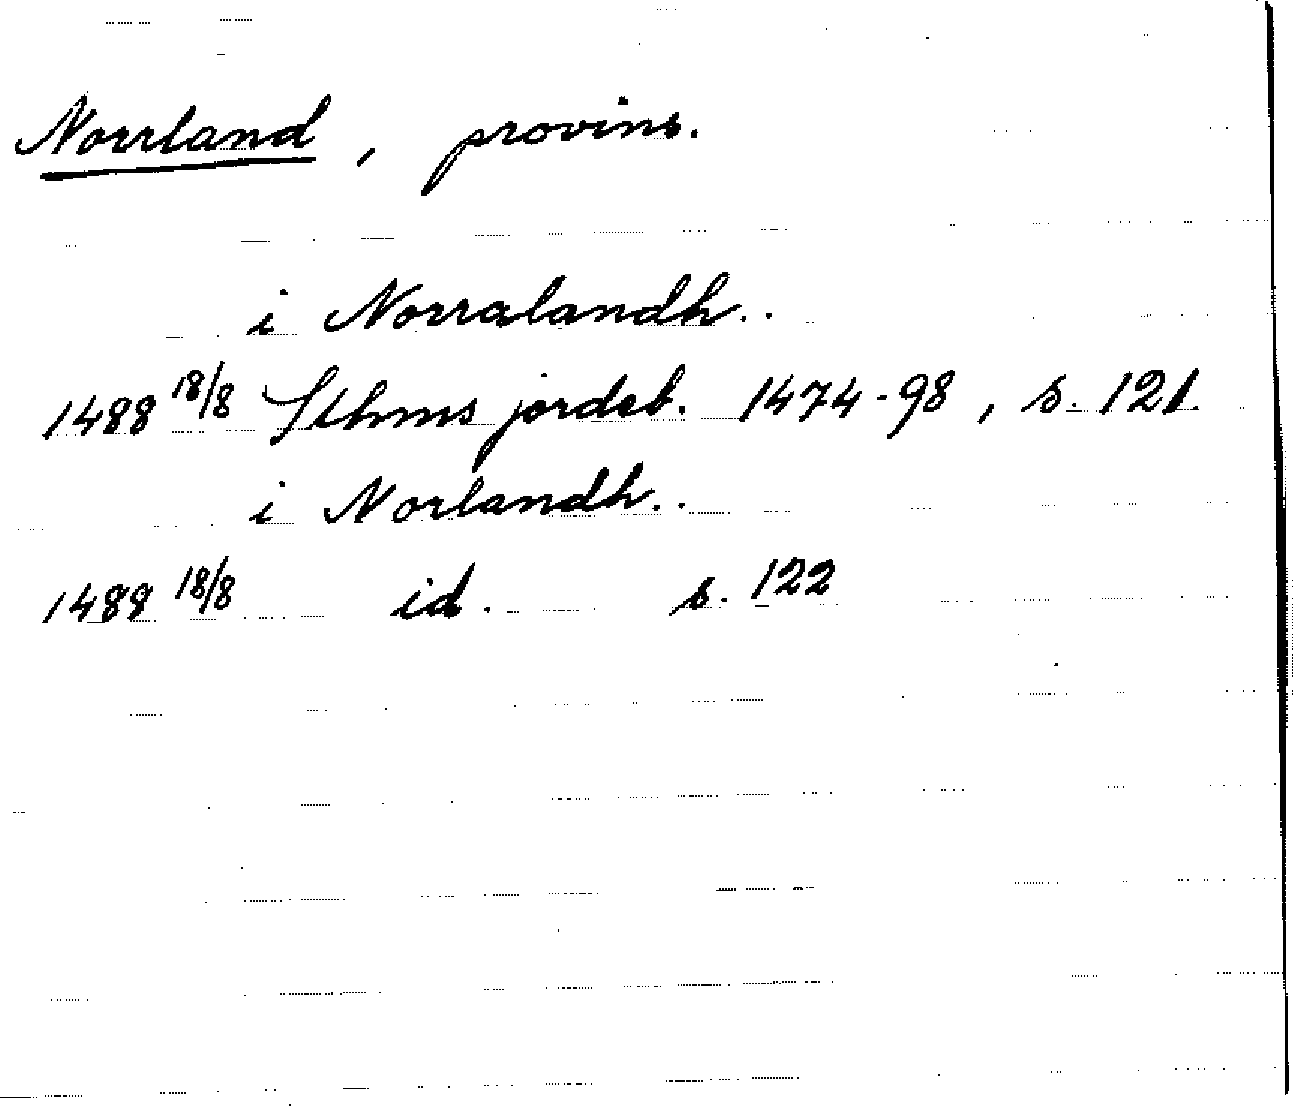 Norrland, provins.
i Norralandh..
1488 18/8 Sthms jordeb. 1474-98, s. 121.
i Norlandh..
1488 18/8 id. s. 122